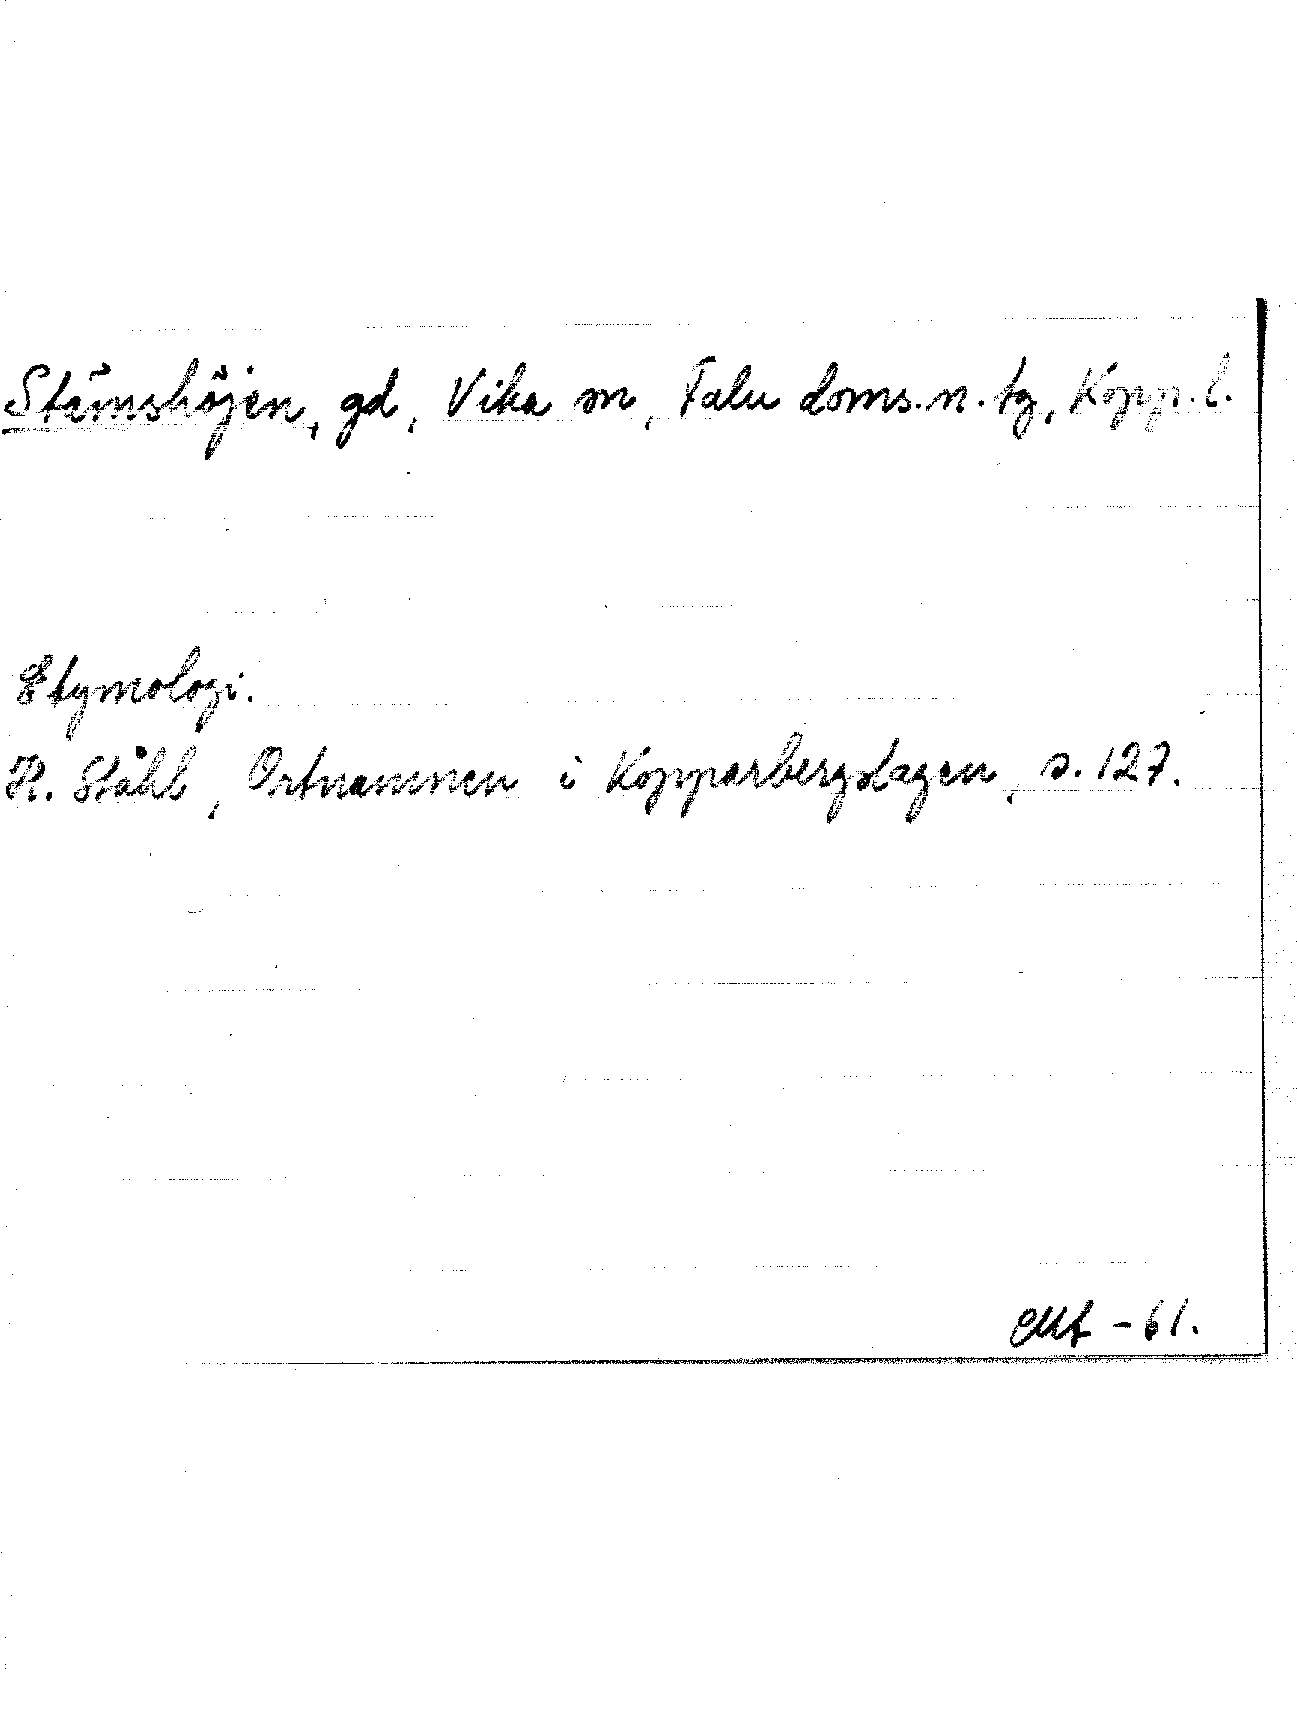 Stämshöjen, gd, Vika sn, Falu doms.n. tg, Kopp. l.
Etymologi.
H. Ståhl, Ortnamnen i Kopparbergslagen, s. 127.
-61.